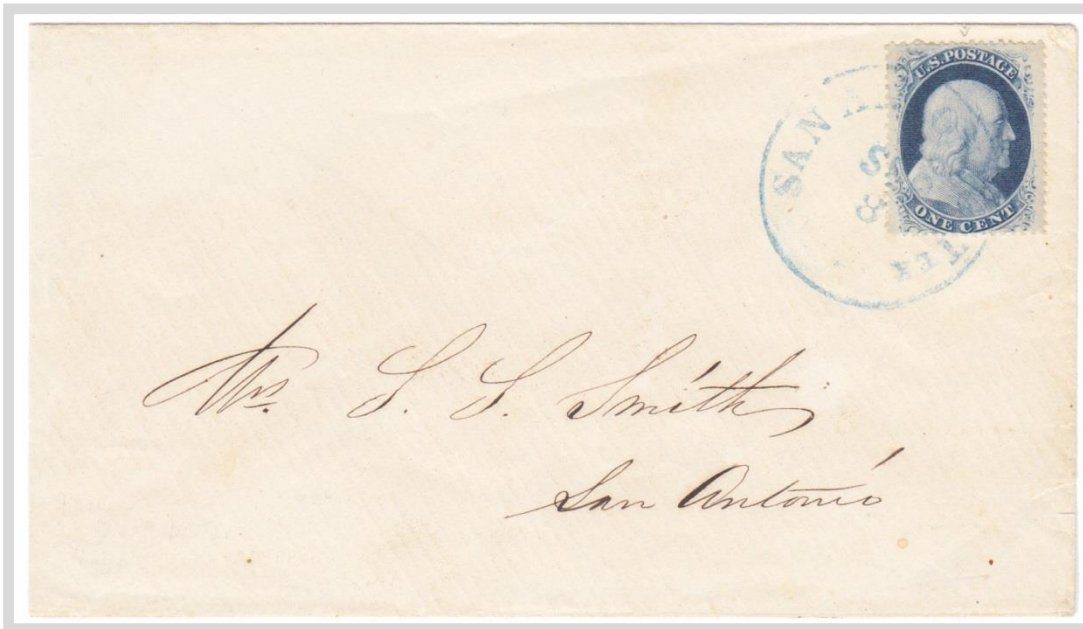 U.S. POSTAGE
ONE CENT
SAN
8
TEX
Mrs. S. S. Smith
San Antonio